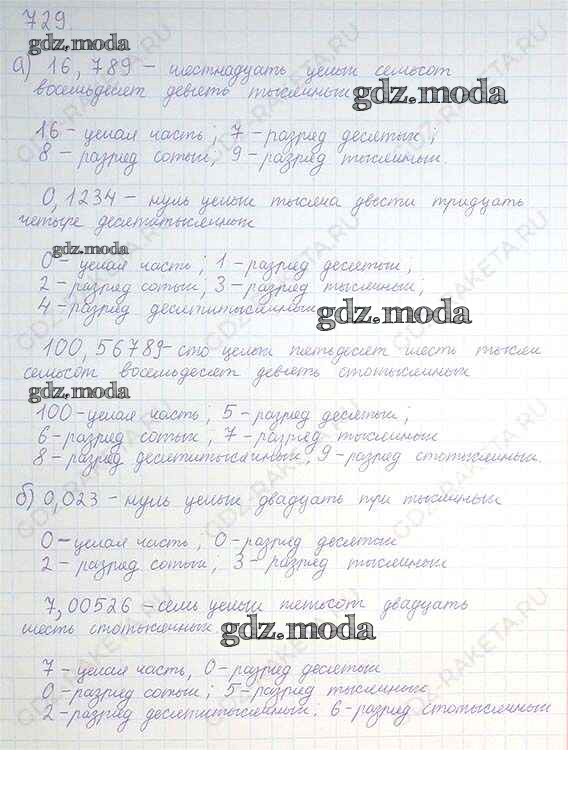 729.
gdz.moda
а) 16,789 – шестнадцать целых семьсот
восемьдесят девять тысячных
gdz.moda
16 – целая часть; 7 – разряд десятых;
8 – разряд сотых; 9 – разряд тысячных.
0,1234 – нуль целых тысяча двести тридцать
четыре десятитысячных
gdz.moda
0 – целая часть; 1 – разряд десятых;
2 – разряд сотых; 3 – разряд тысячных;
4 – разряд десятитысячных
gdz.moda
100,56789 – сто целых пятьдесят шесть тысяч
семьсот восемьдесят девять стотысячных
gdz.moda
100 – целая часть; 5 – разряд десятых;
6 – разряд сотых; 7 – разряд тысячных
8 – разряд десятитысячных, 9 – разряд стотысячных.
б) 0,023 – нуль целых двадцать три тысячных
0 – целая часть, 0 – разряд десятых
2 – разряд сотых, 3 – разряд тысячных
7,00526 – семь целых пятьсот двадцать
шесть стотысячных
gdz.moda
7 – целая часть, 0 – разряд десятых
0 – разряд сотых; 5 – разряд тысячных,
2 – разряд десятитысячных; 6 – разряд стотысячных
GDZ-RAKETA.RU